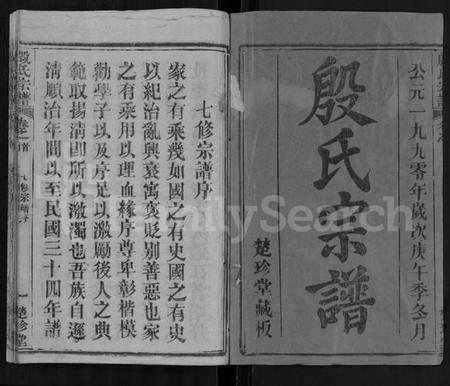 公元一九九零年歲次庚午季冬月
殷氏宗譜
楚珍堂藏板
七修宗譜序
家之有乘幾如國之有史國之有史
以紀治亂興衰寓褒貶別善惡也家
之有乘用以理血緣序尊卑彰楷模
勸學子以及序足以激勵後人之典
範取揚清即所以激濁也吾族自遜
清順治年間以至民國三十四年譜
殷氏宗譜
卷首
楚珍堂
FamilySearch